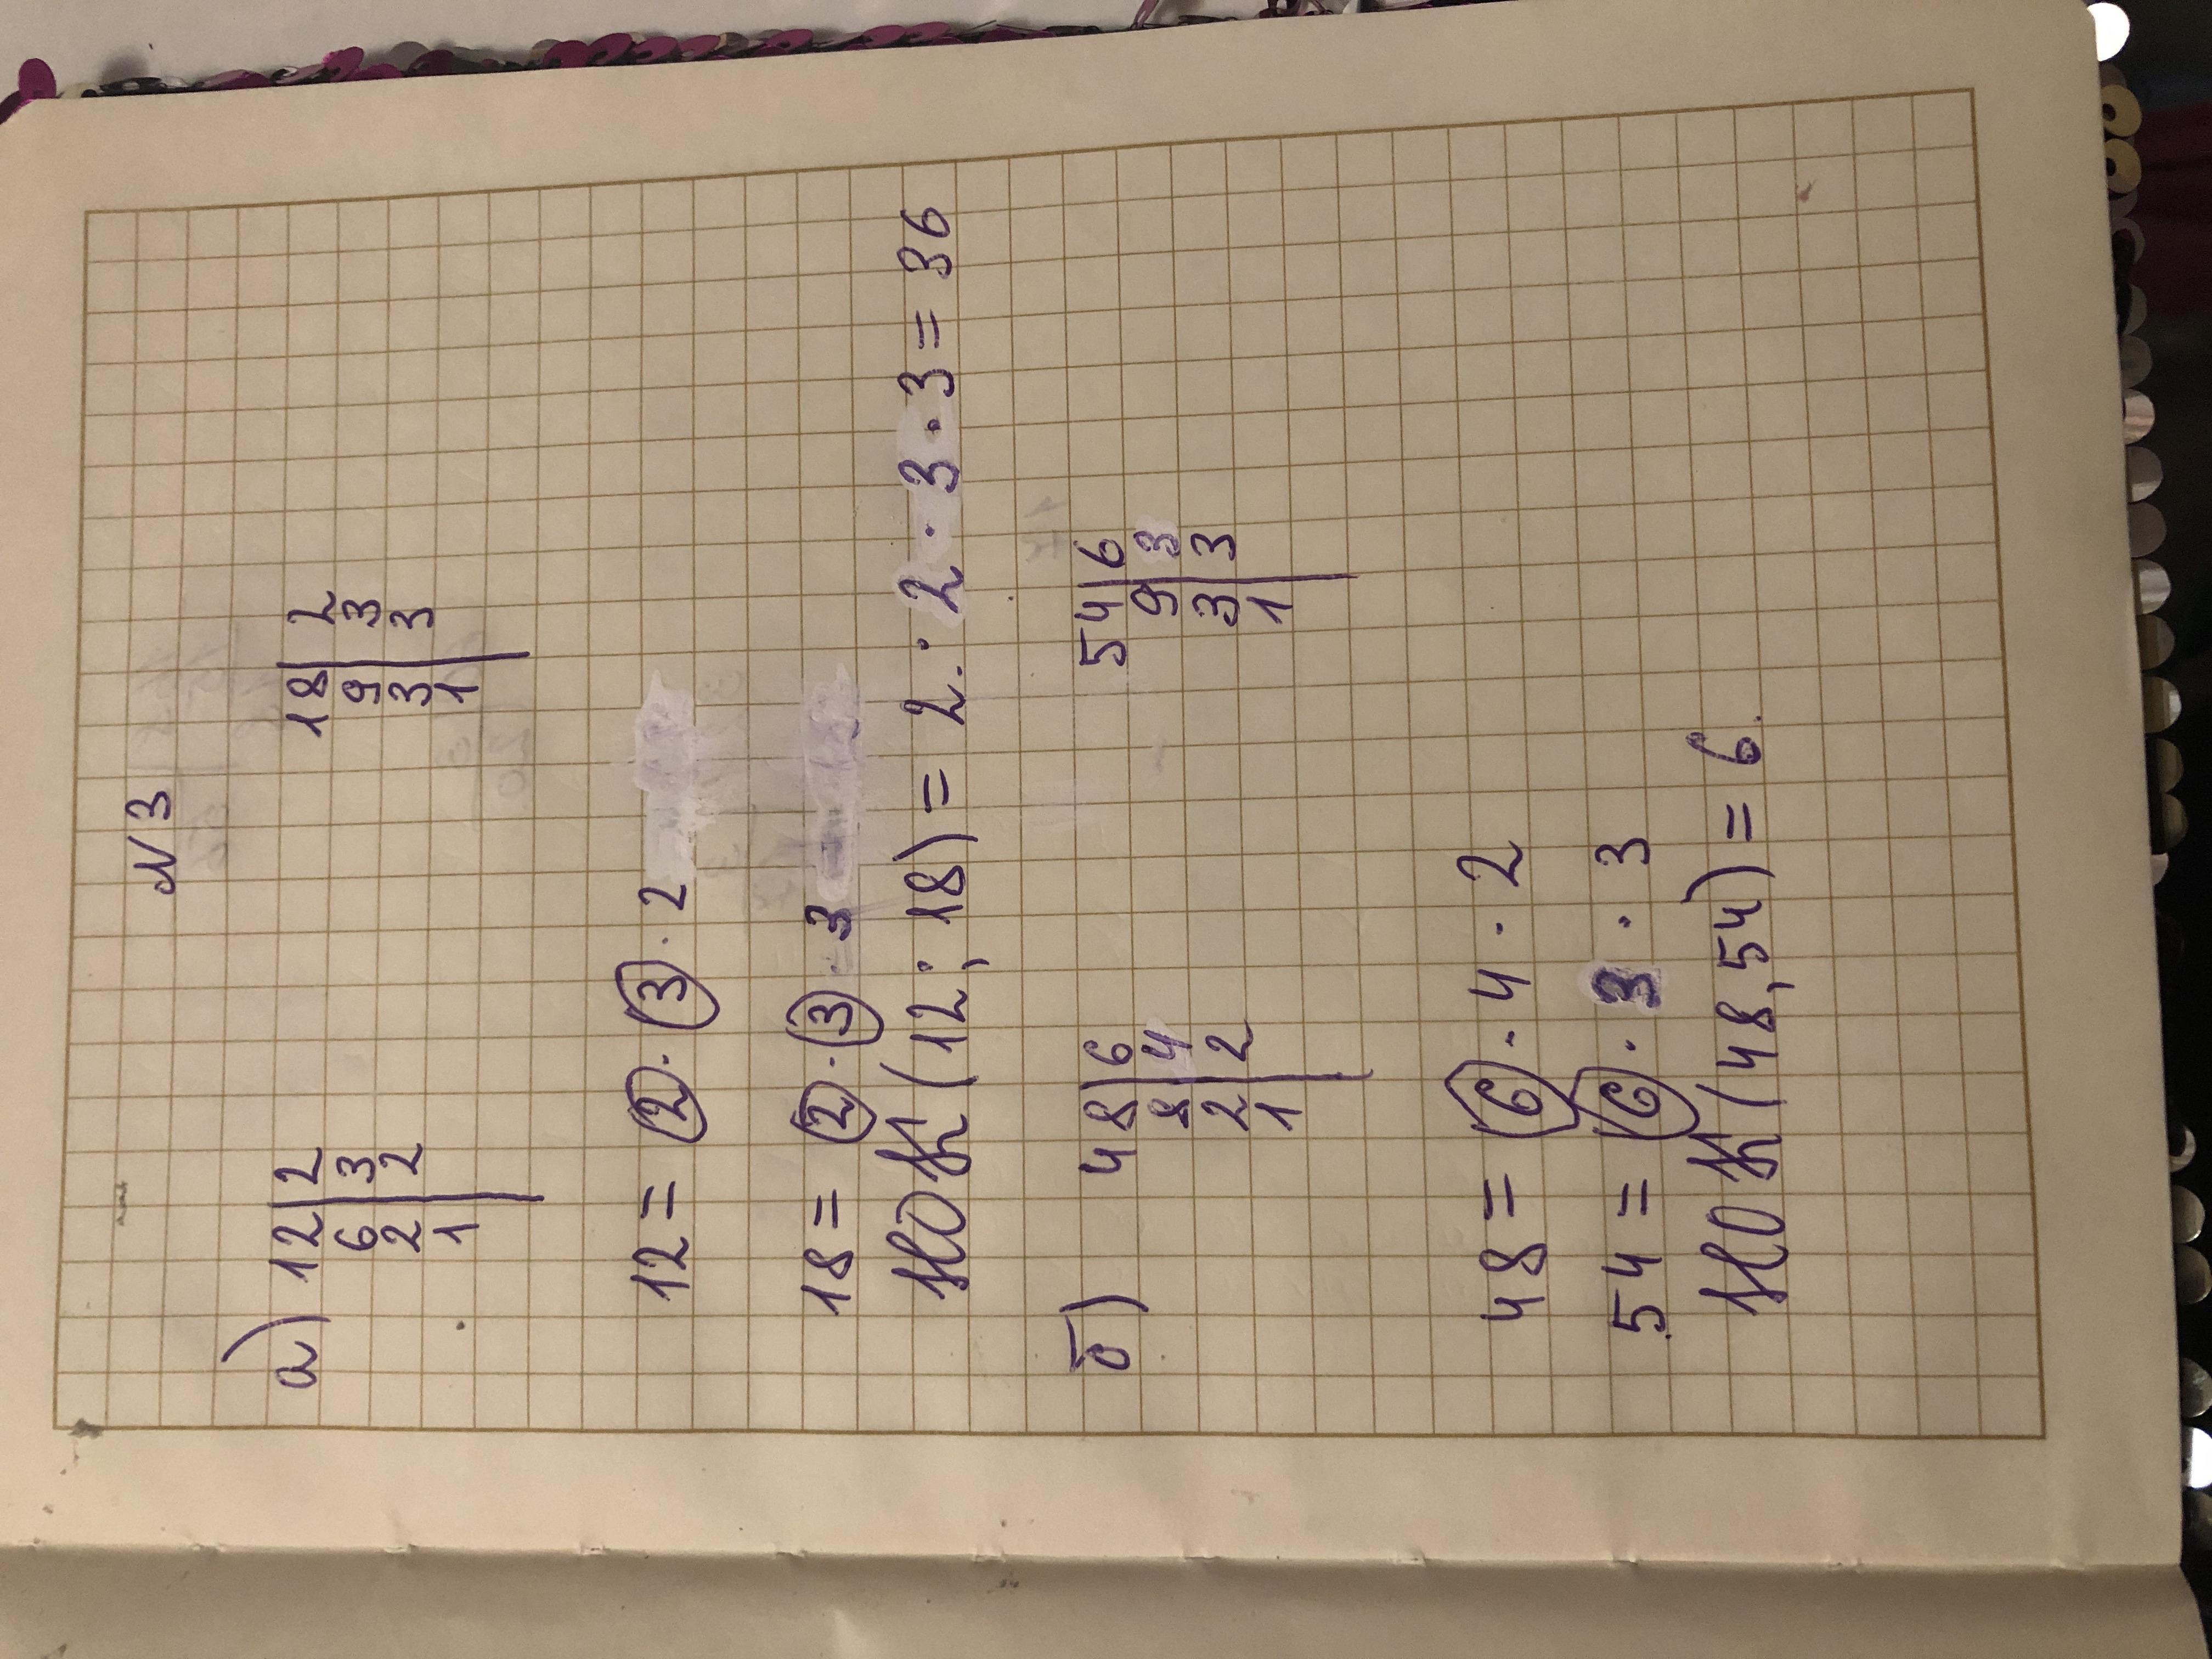 №3
а) 12 | 2   18 | 2
6 | 3   9 | 3
2 | 2   3 | 3
1 |   1 |
12 = 2 · 3 · 2
18 = 2 · 3 · 3
НОК (12; 18) = 2 · 2 · 3 · 3 = 36
б) 48 | 6   54 | 6
8 | 4   9 | 3
2 | 2   3 | 3
1 |   1 |
48 = 6 · 4 · 2
54 = 6 · 3 · 3
НОК (48, 54) = 6.